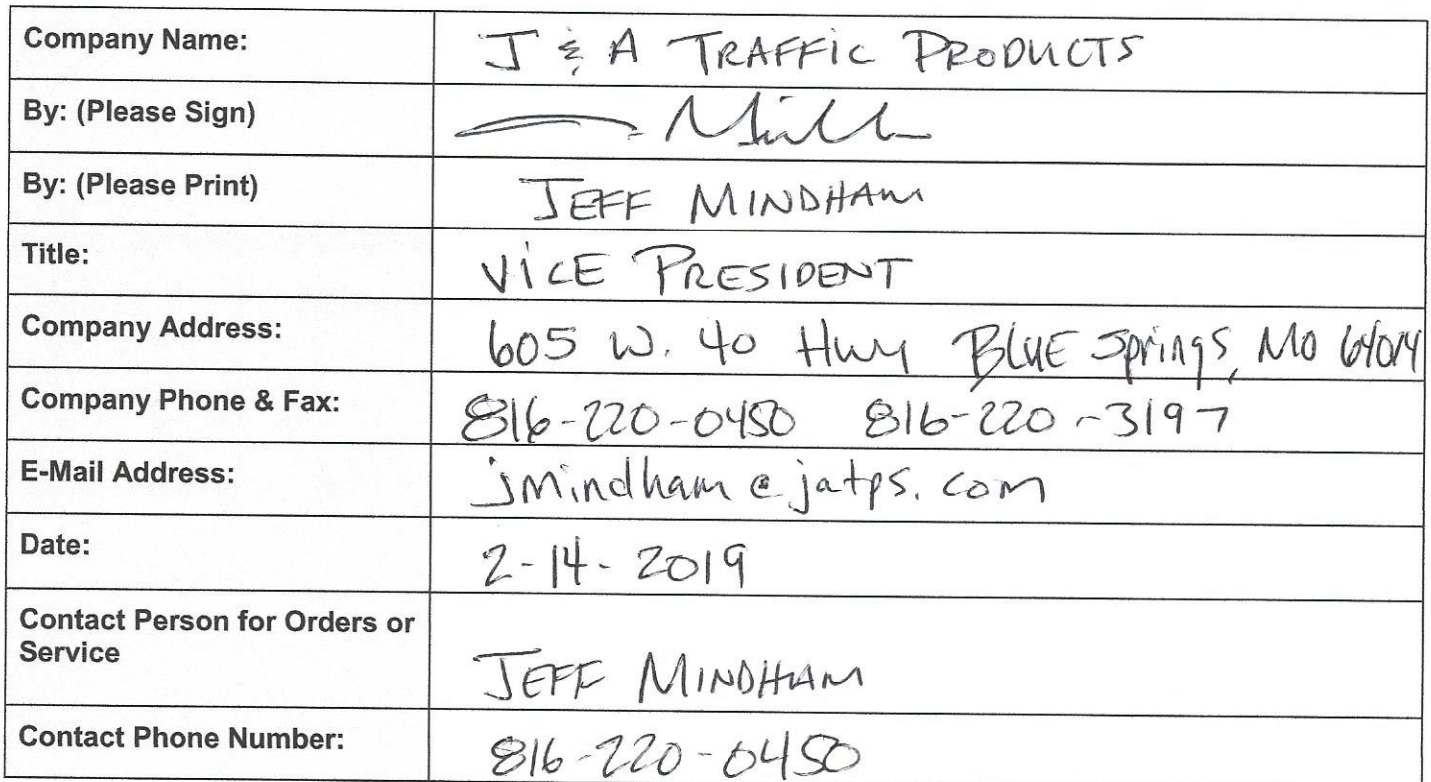 Company Name: J & A TRAFFIC PRODUCTS
By: (Please Sign)
By: (Please Print) JEFF MINDHAM
Title: VICE PRESIDENT
Company Address: 605 W. 40 Hwy BLUE Springs, MO 64014
Company Phone & Fax: 816-220-0450 816-220-3197
E-Mail Address: jmindham@jatps.com
Date: 2-14-2019
Contact Person for Orders or
Service JEFF MINDHAM
Contact Phone Number: 816-220-0450